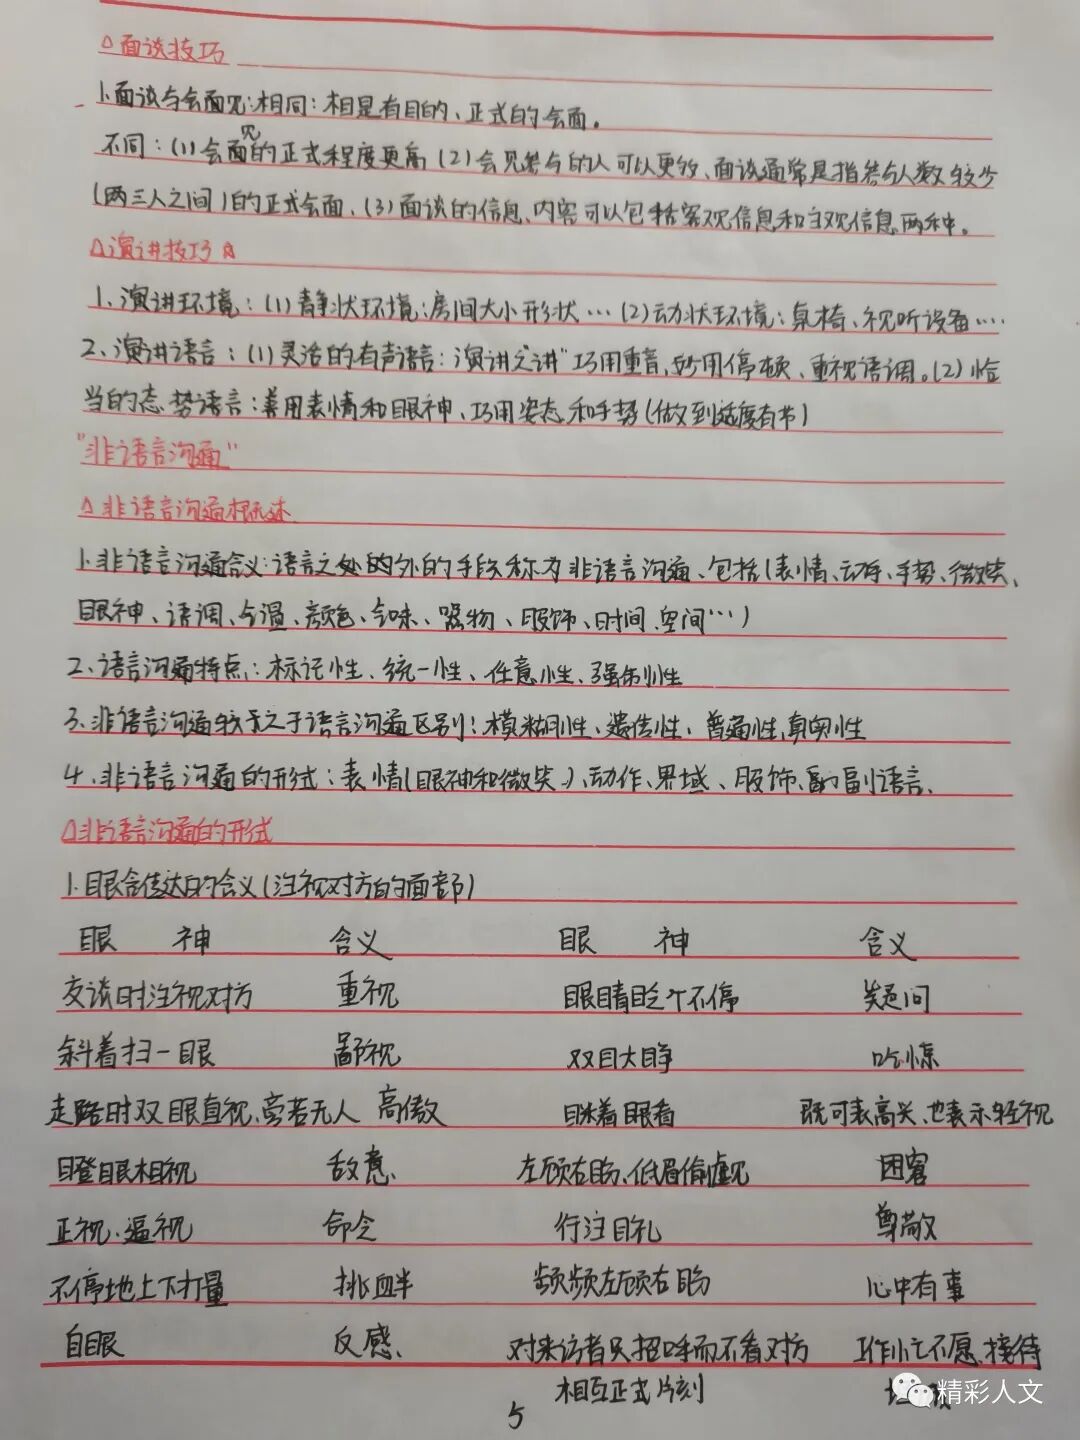 △面谈技巧
1.面谈与会面见:相同:相是有目的、正式的会面。
不同:(1)会面见的正式程度更高(2)会见参与的人可以更多、面谈通常是指参与人数较少
(两三人之间)的正式会面、(3)面谈的信息、内容可以包括客观信息和主观信息两种。
△演讲技巧☆
1、演讲环境:(1)静状环境:房间大小形状…(2)动状环境:桌椅、视听设备……
2、演讲语言:(1)灵活的有声语言:演讲之"讲"巧用重音,妙用停顿、重视语调。(2)恰
当的态势语言:善用表情和眼神、巧用姿态和手势(做到适度有节)
"非语言沟通"
△非语言沟通概述
1.非语言沟通含义:语言之处的外的手段称为非语言沟通、包括(表情、动作、手势、微笑、
眼神、语调、气温、颜色、气味、器物、服饰、时间、空间…)
2、语言沟通特点:标记性、统一性、任意性、强制性
3.非语言沟通较于语言沟通区别:模糊性、遗传性、普遍性,真实性
4、非语言沟通的形式:表情(眼神和微笑)、动作、界域、服饰、副语言、
△非语言沟通的形式
1.眼含传达的含义(注视对方的面部)
眼 神 含义 眼 神 含义
交谈时注视对方 重视 眼睛眨个不停 疑问
斜着扫一眼 鄙视 双目大睁 吃惊
走路时双眼直视、旁若无人 高傲 眯着眼看 既可表高兴、也表示轻视
瞪眼相视 敌意、 左顾右盼、低眉偷觑 困窘
正视、逼视 命令 行注目礼 尊敬
不停地上下打量 挑衅 频频左顾右盼 心中有事
白眼 反感、 对来访者只招呼而不看对方 工作忙不愿接待
相互正式片刻
5
精彩人文